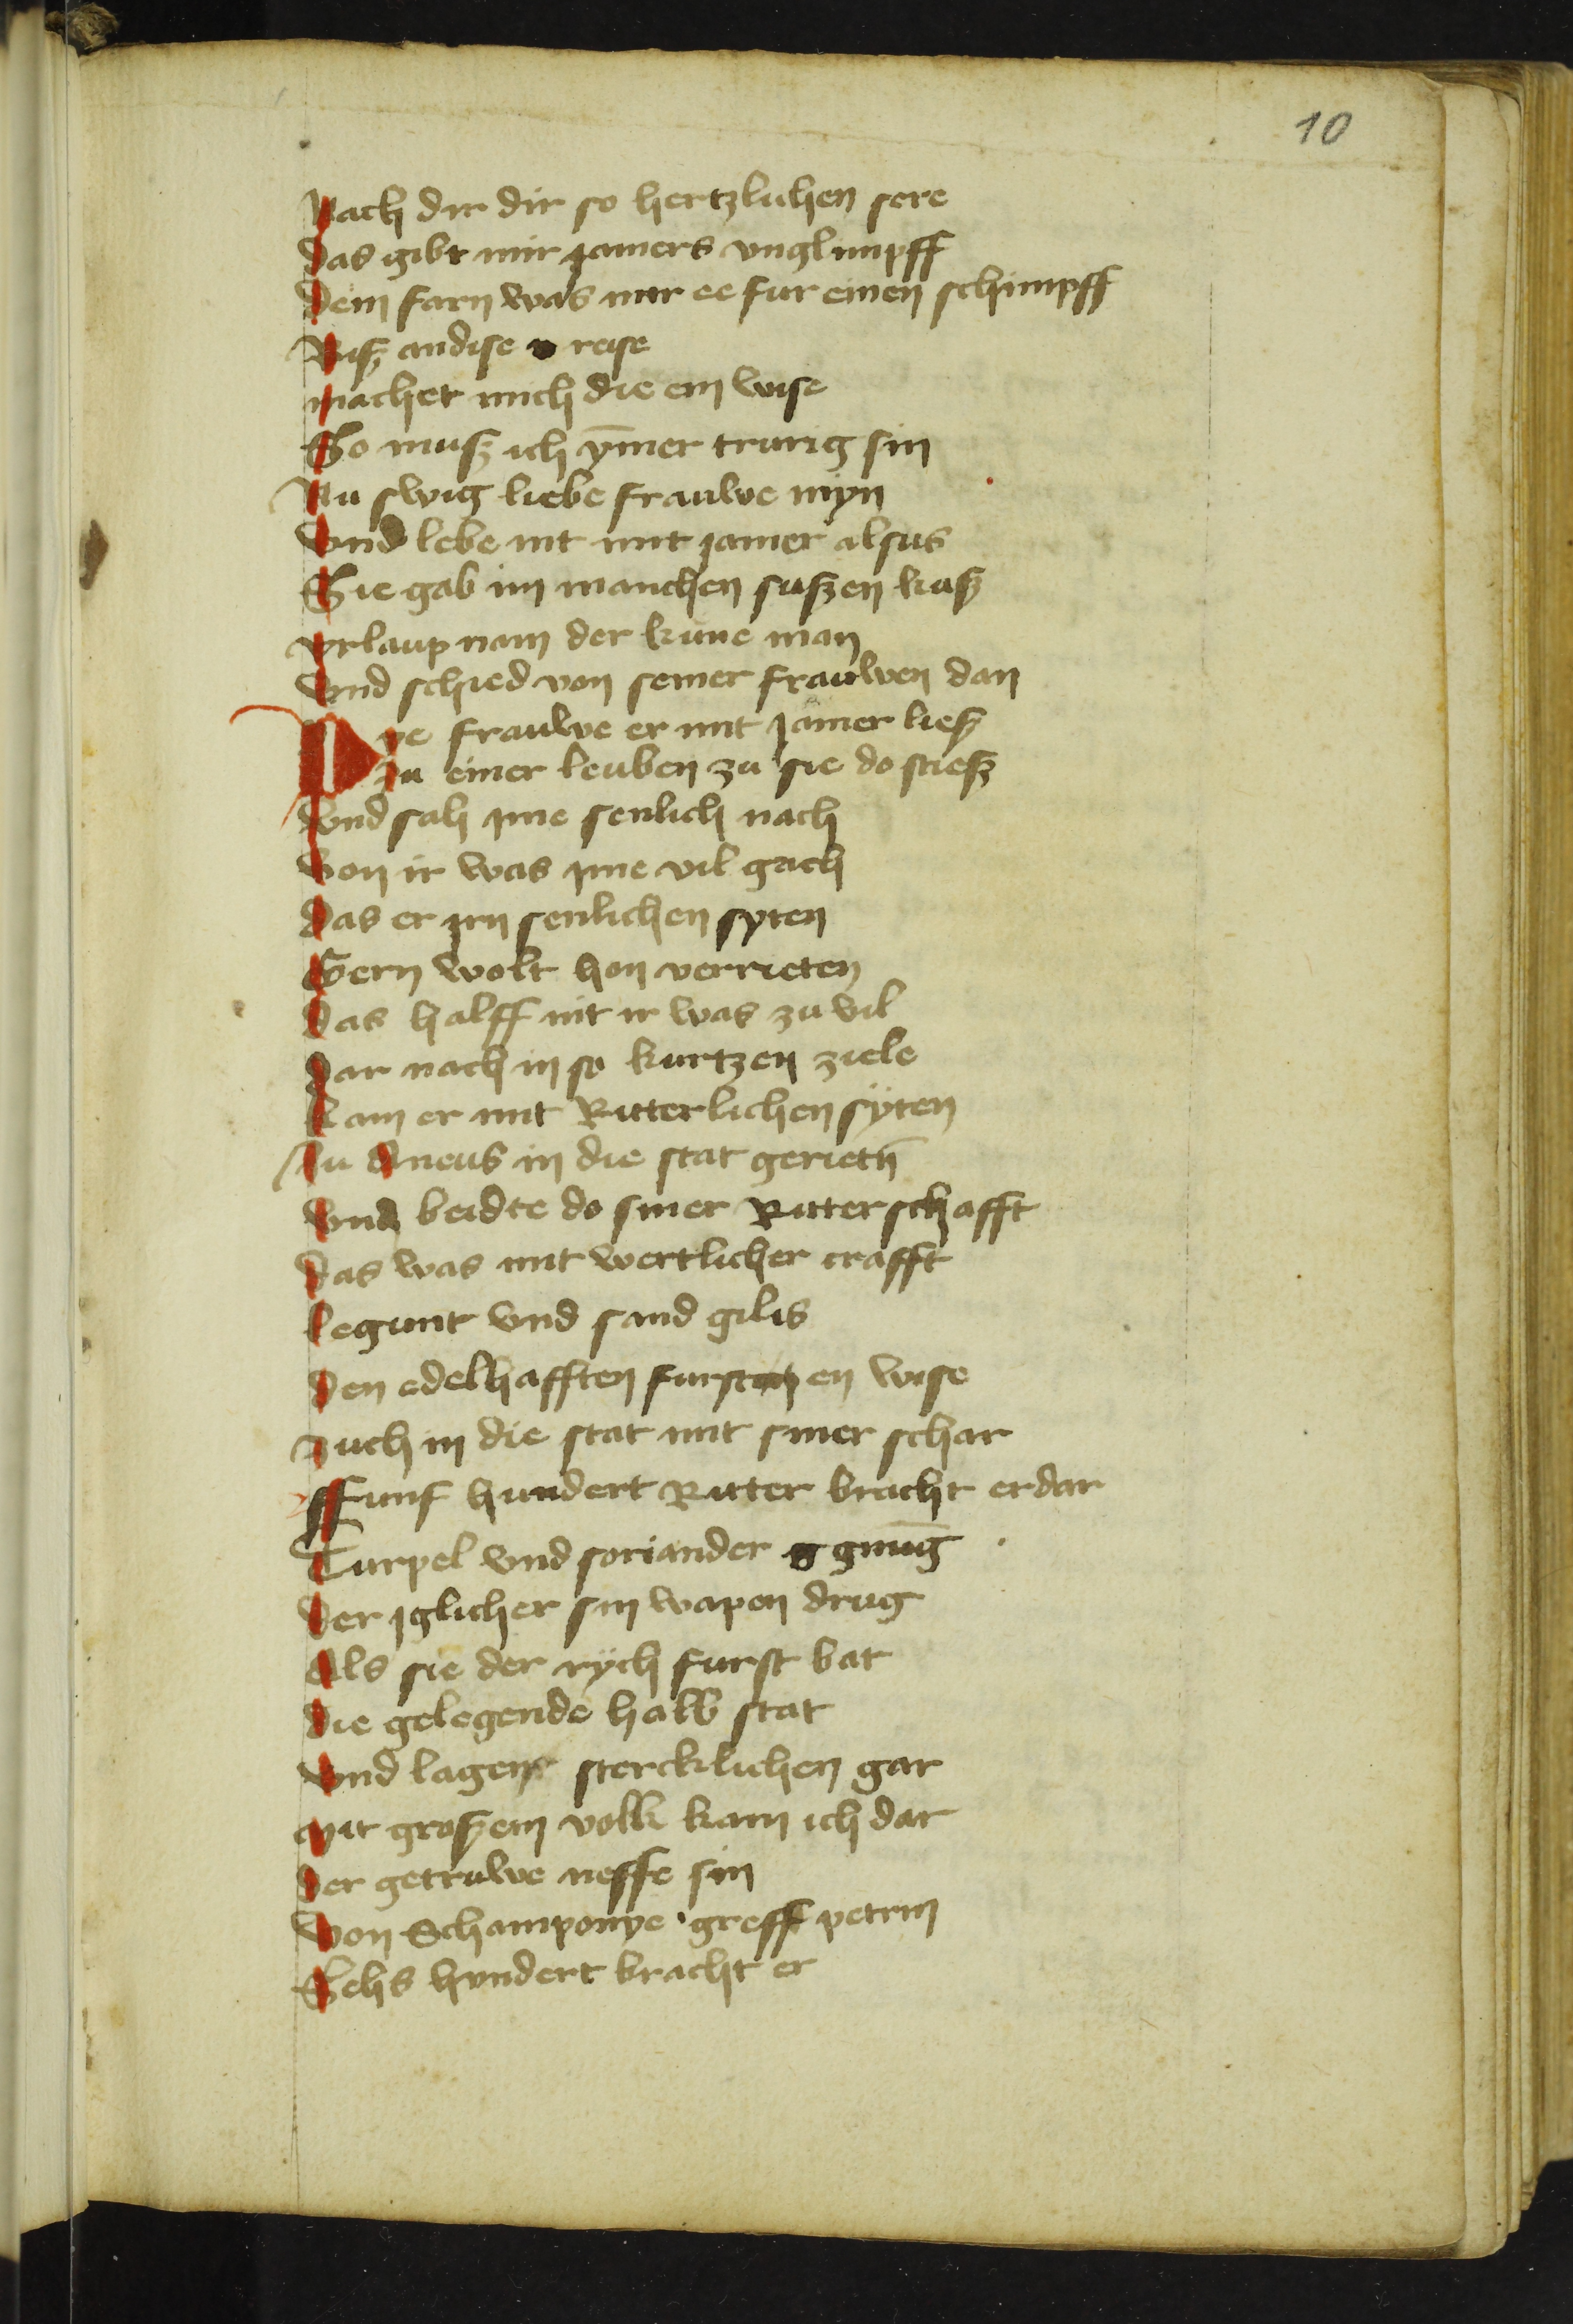 10
Nach dir dir so hertzlichen sere
Das gibt mir jamers vnglimpff
Dein farn was mir ee fur einen schimpff
Bisz andise reise
machet mich die ein wise
So musz ich ym̄er trurig sin
Nu swig liebe frauwe myn
Vnd lebe nit mit jamer alsus
Sie gab im manchen suszen kusz
vrlaup nam der kune man
Vnd schied von seiner frauwen dan
Dye frauwe er mit jamer liesz
Zu einer leuben zu sie do stiesz
Vnd sah jme senlich nach
Von ir was jme vil gach
Das er jrn senlichen syten
Gern wolt hon verrieten
Das halff nit ir was zu vil
Dar nach in so kurtzen ziele
Kam er mit Ritterlichen syten
Zu Aneus in die stat gerietn̄
Vnd beidte do siner Ritterschafft
Das was mit wertlicher crafft
legunt vnd sand gilis
Den edelhafften fursten wise
Zuch in die stat mit siner schar
Ffunf hundert Ritter bracht er dar
Turpel vnd soriander gnūg
Der jglicher sin wapen drug
Als sie der rych furst bat
Die gelegende halb stat
Vnd lagen stercklichen gar
Mit groszem volk kam ich dar
Der getruwe neffe sin
Von Schamponye greff petrin
Sehs hundert bracht er